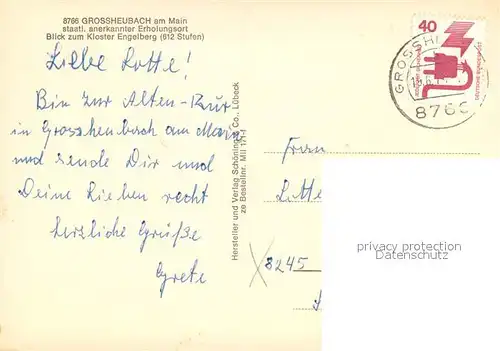 8766 GROSSHEUBACH am Main
staatl. anerkannter Erholungsort
Blick zum Kloster Engelberg (612 Stufen)
Liebe Lotte!
Bin zur Alten-Kur
in Grossheubach am Main
und sende Dir und
Deine Lieben recht
herzliche Grüße
Grete
Hersteller und Verlag Schöning & Co., Lübeck
Bestellnr. Mil 171-f
40
DEUTSCHE BUNDESPOST
GROSSH
8766
Frau
Lotte
8245
privacy protection
Datenschutz